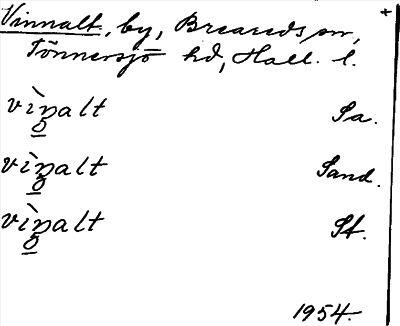 Vinnalt, by, Breareds sn, +
Tönnersjö hd, Hall. l.
vìn̥alt Sa.
vìn̥alt Sand.
vìn̥alt St.
1954.